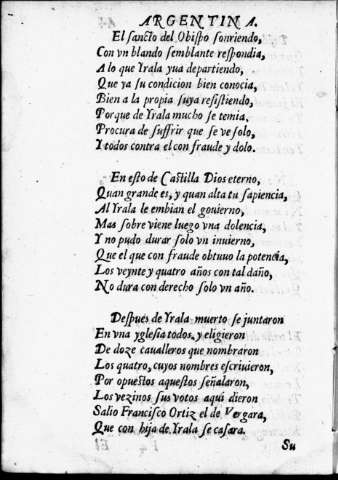 ARGENTINA.
El sancto del Obispo sonriendo,
Con vn blando semblante respondia,
A lo que Yrala yua departiendo,
Que ya su condicion bien conocia,
Bien a la propia suya resistiendo,
Porque de Yrala mucho se temia.
Procura de suffrir que se ve solo,
Y todos contra el con fraude y dolo.
En esto de Castilla Dios eterno,
Quan grande es, y quan alta tu sapiencia,
Al Yrala le embian el gouierno,
Mas sobre viene luego vna dolencia,
Y no pudo durar solo vn inuierno,
Que el que con fraude obtuuo la potencia,
Los veynte y quatro años con tal daño,
No dura con derecho solo vn año.
Despues de Yrala muerto se juntaron
En vna yglesia todos, y eligieron
De doze caualleros que nombraron
Los quatro, cuyos nombres escriuieron,
Por opuestos aquestos señalaron,
Los vezinos sus votos aqui dieron
Salio Francisco Ortiz el de Vergara,
Que con hija de Yrala se casara.
Su